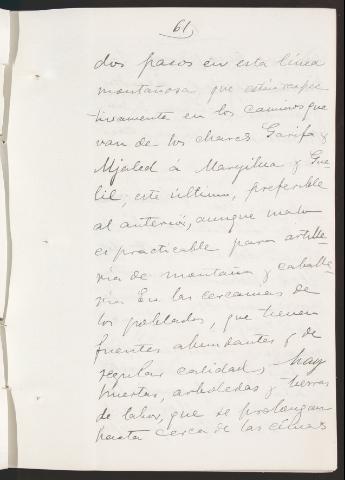 61
dos pasos en esta línea
montañosa, que están respec
tivamente en los caminos que
van de los chares Garifa y
Mjaled á Maryilua y Gue
lil; este último, preferible
al anterior, aunque malo
es practicable para artille-
ría de montaña y caballe-
ría. En las cercanías de
los poblados, que tienen
fuentes abundantes y de
regular calidad, hay
huertas, arboledas y tierras
de labor, que se prolongan
hasta cerca de las cimas